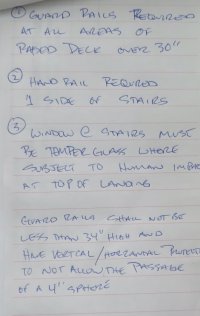 ① GUARD RAILS REQUIRED
AT ALL AREAS OF
RAISED DECK OVER 30"
② HAND RAIL REQUIRED
1 SIDE OF STAIRS
③ WINDOW @ STAIRS MUST
BE TEMPER GLASS WHERE
SUBJECT TO HUMAN IMPA
AT TOP OF LANDING
GUARD RAILS SHALL NOT BE
LESS THAN 34" HIGH AND
HAVE VERTICAL/HORIZONTAL
TO NOT ALLOW THE PASSAGE
OF A 4" SPHERE